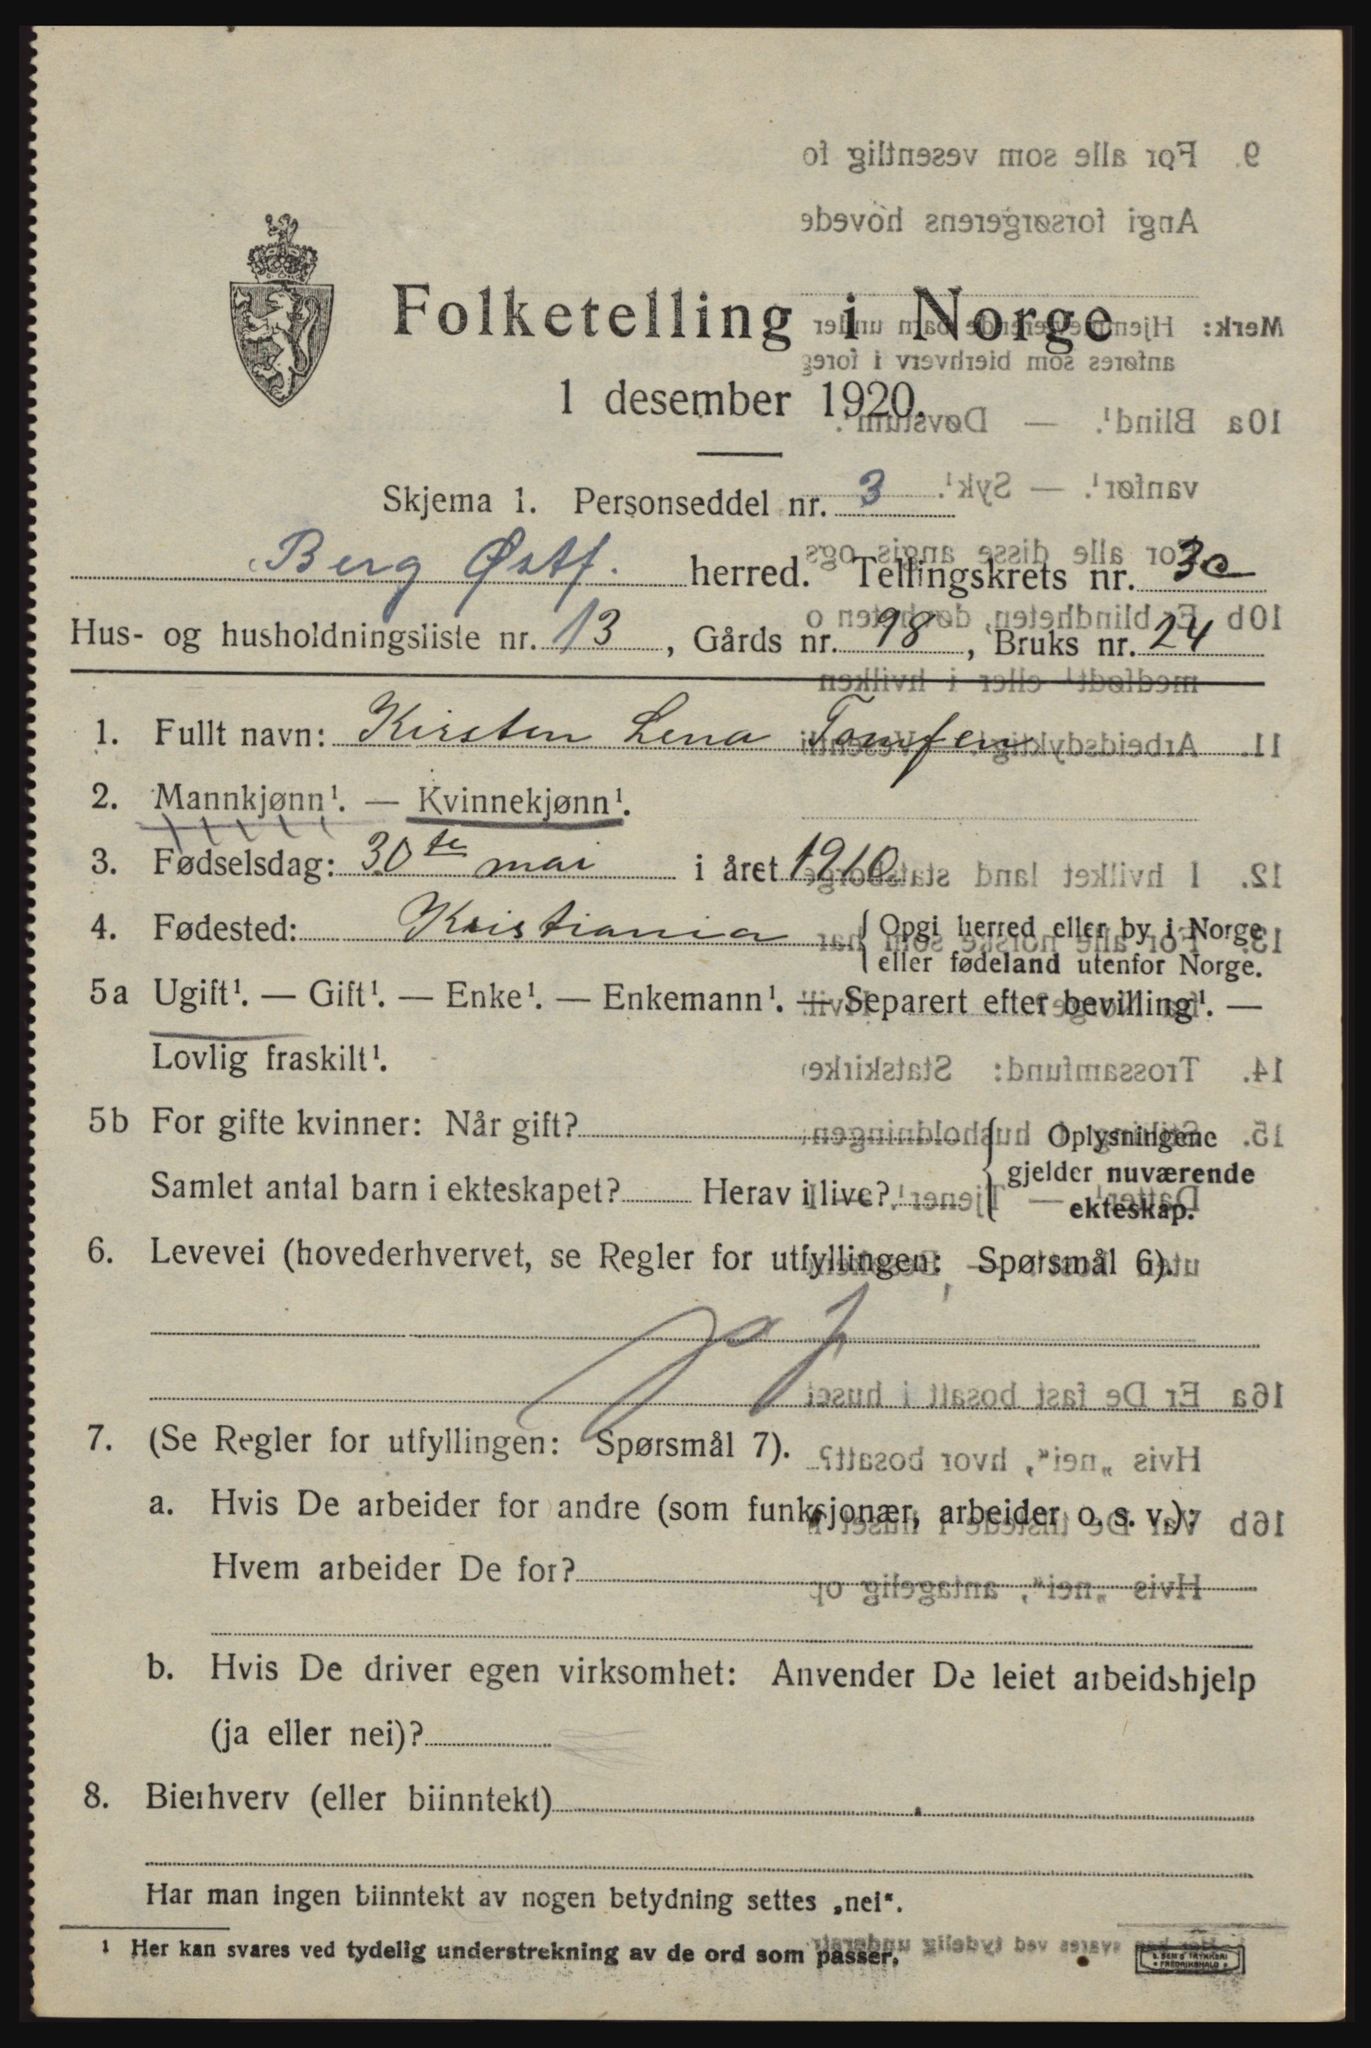 Folketelling i Norge
1 desember 1920.
Skjema 1. Personseddel nr. 3
Berg Østf. herred. Tellingskrets nr. 3c
Hus- og husholdningsliste nr. 13, Gårds nr. 98, Bruks nr. 24
1. Fullt navn: Kirsten Lena
2. Mannkjønn¹. — Kvinnekjønn¹.
3. Fødselsdag: 30te mai i året 1910
4. Fødested: Kristiania {Opgi herred eller by i Norge
eller fødeland utenfor Norge.
5a Ugift¹. — Gift¹. — Enke¹. — Enkemann¹. — Separert efter bevilling¹. —
Lovlig fraskilt¹.
5b For gifte kvinner: Når gift? {Oplysningene
gjelder nuværende
Samlet antal barn i ekteskapet? Herav i live?
ekteskap.
6. Levevei (hovederhvervet, se Regler for utfyllingen: Spørsmål 6).
7. (Se Regler for utfyllingen: Spørsmål 7).
a. Hvis De arbeider for andre (som funksjonær, arbeider o. s. v.):
Hvem arbeider De for?
b. Hvis De driver egen virksomhet: Anvender De leiet arbeidshjelp
(ja eller nei)?
8. Bierhverv (eller biinntekt)
Har man ingen biinntekt av nogen betydning settes „nei“.
¹ Her kan svares ved tydelig understrekning av de ord som passer.